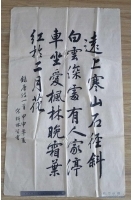 遠上寒山石徑斜
白雲深處有人家亭
車坐愛楓林晚霜葉
紅於二月花
錄唐詩一首